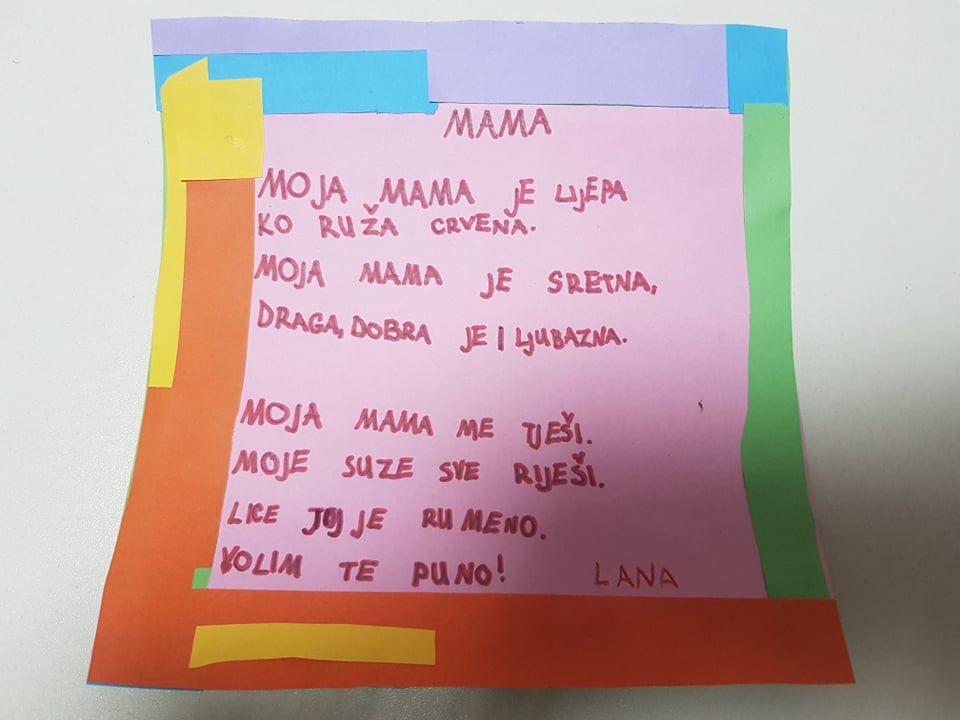 MAMA
MOJA MAMA JE LIJEPA
KO RUŽA CRVENA.
MOJA MAMA JE SRETNA,
DRAGA, DOBRA JE I LJUBAZNA.
MOJA MAMA ME TJEŠI.
MOJE SUZE SVE RIJEŠI.
LICE JOJ JE RUMENO.
VOLIM TE PUNO! LANA